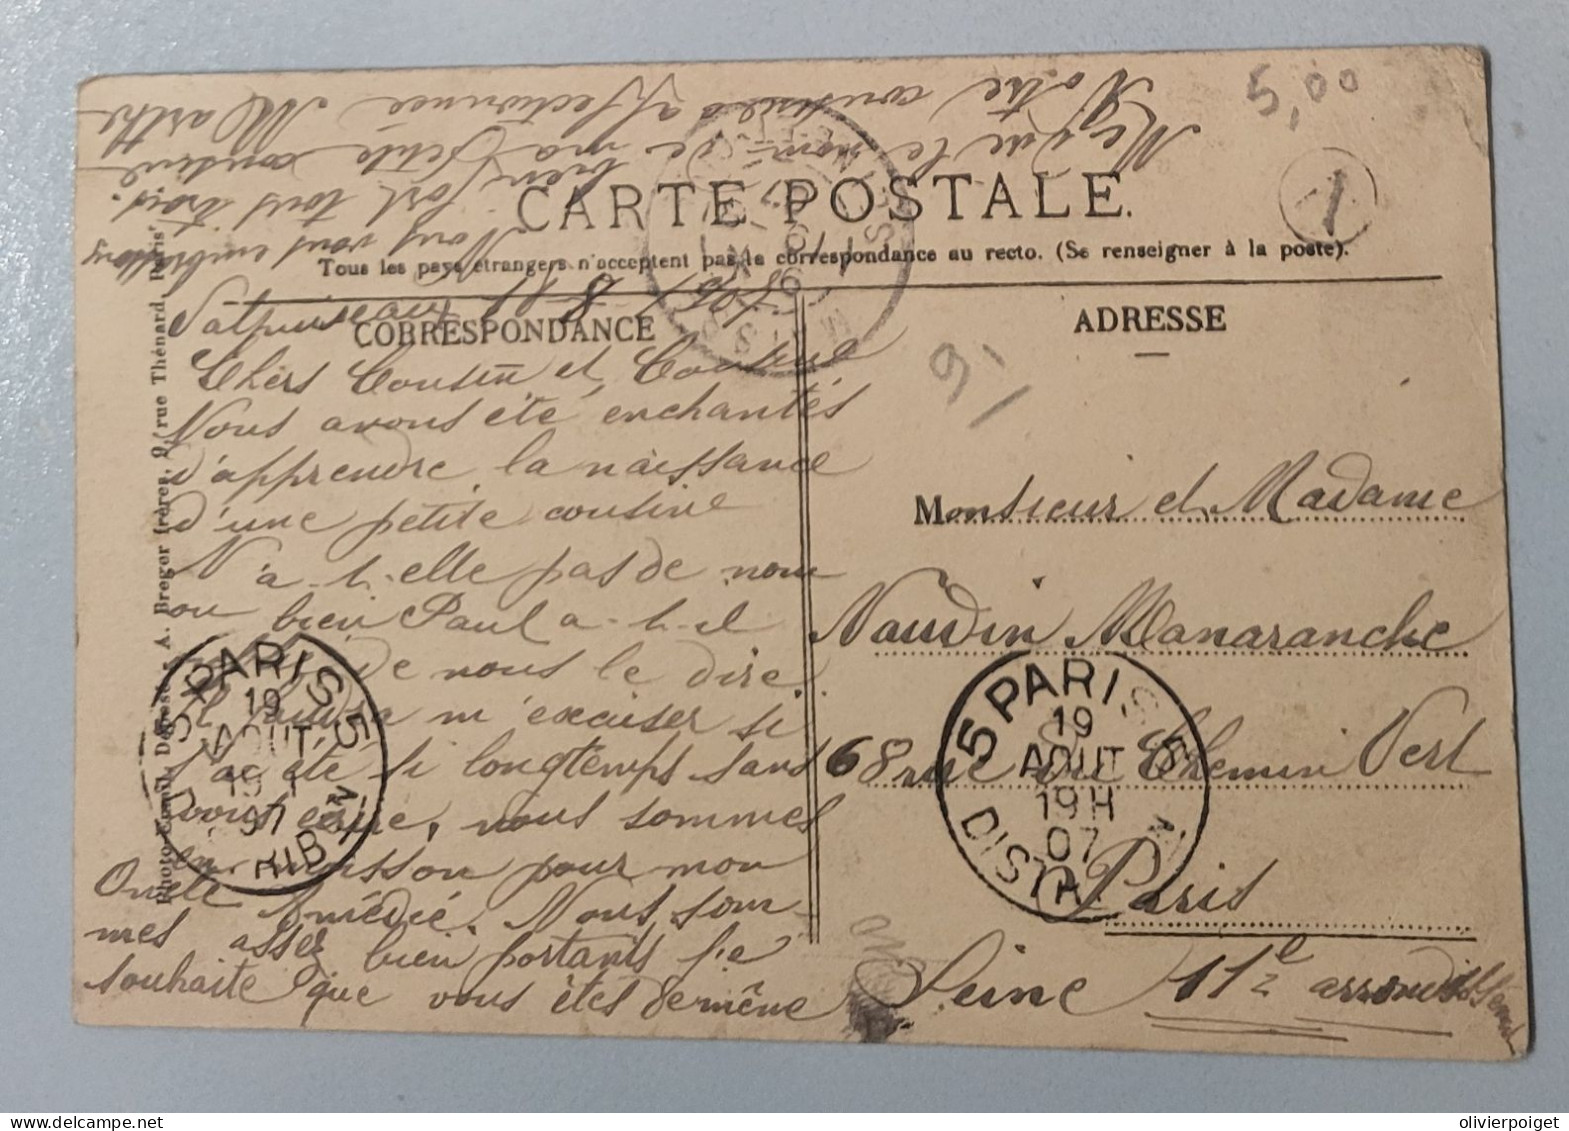 5,00
CARTE POSTALE.
Tous les pays étrangers n'acceptent pas la correspondance au recto. (Se renseigner à la poste).
CORRESPONDANCE
ADRESSE
8 1907
Chers Cousin et Cousine
Nous avons été enchantés
d'apprendre la naissance
d'une petite cousine
N'a-t-elle pas de nom
ou bien Paul a-t-il
de nous le dire.
Il m'excuser si
j'ai été si longtemps sans
vous écrire, nous sommes
en moisson pour mon
Oncle Amédée. Nous som-
mes assez bien portants je
souhaite que vous êtes de même
Nous vous embrassons
bien fort tous trois.
Me que le nom de ma petite cousine
Votre cousine affectionnée Marthe
Monsieur et Madame
Naudin Manaranche
68 rue du Chemin Vert
Paris
Seine 11e arrondissement
PARIS 5
19
AOUT
07
5 PARIS 5
19
AOUT
19H
07
DISTRIB
A. Breger frères, 9, rue Thénard, Paris
olivierpoiget